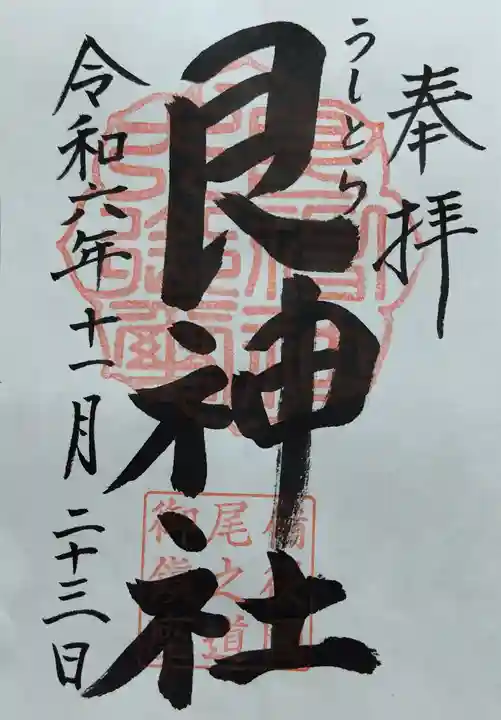 奉拝
うしとら
艮神社
令和六年十一月二十三日
備後国
尾之道
御鎮座